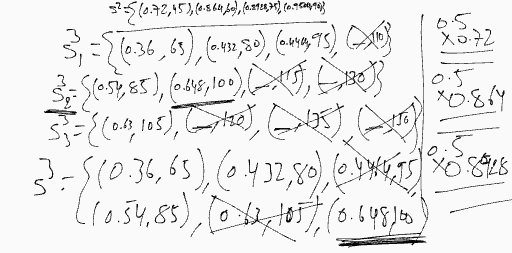 S²={(0.72,45),(0.864,60),(0.8928,75),(
S³₁={(0.36,65),(0.432,80),(0.4464,95),( ,110)}
S³₂={(0.54,85),(0.648,100),( ,115),( ,130)}
S³₃={(0.63,105),( ,120),( ,135),( ,150)}
S³={(0.36,65),(0.432,80),(0.4464,95)
(0.54,85),(0.63,105),(0.648,100)
0.5
×0.72
0.5
×0.864
0.5
×0.8928